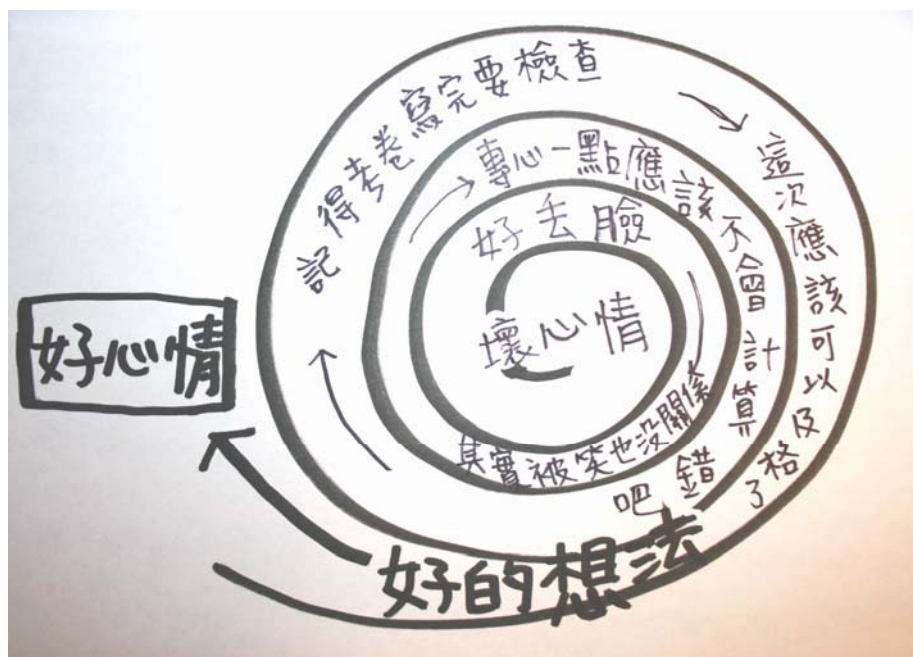 壞心情
好丟臉
其實被笑也沒關係
專心一點應該不會計算錯吧
記得考卷寫完要檢查
這次應該可以及格了
好的想法
好心情